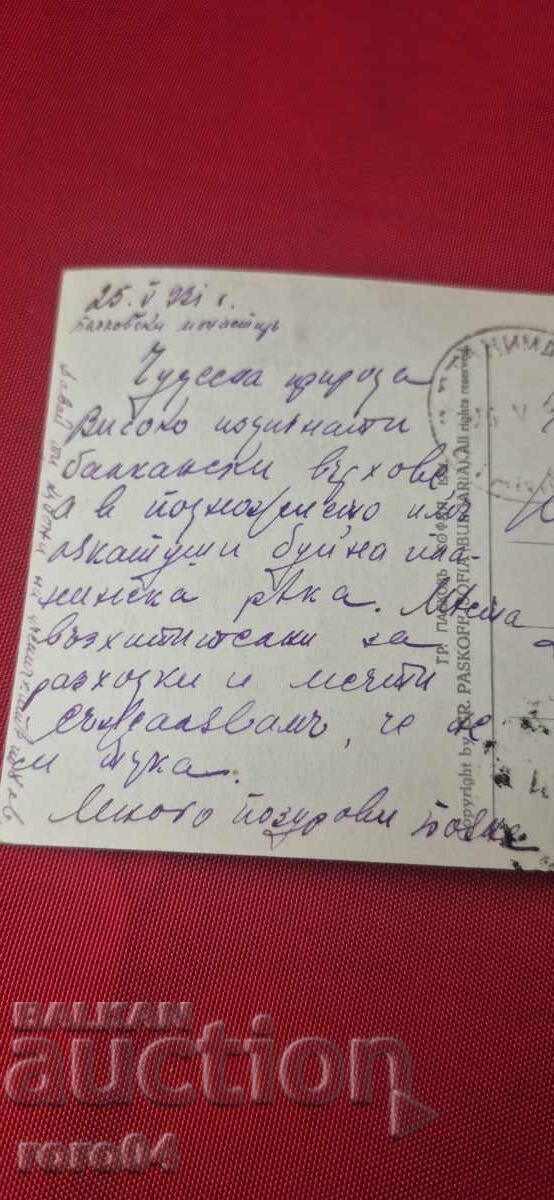 25. V 931 г.
Бачковски монастиръ
Чудесна природа
Високо издигнати
балкански върхове
а в подножието им
лъкатуши буйна пла-
нинска рѣка. Мѣста
възхитителни за
разходки и мечти
Съжалявамъ, че не
си тука.
Много поздрави
ГР. ПАСКОВЪ СОФИЯ
Copyright by GR. PASKOFF SOFIA (BULGARIA). All rights reserved
НИМА
BALKAN
auction
roro04